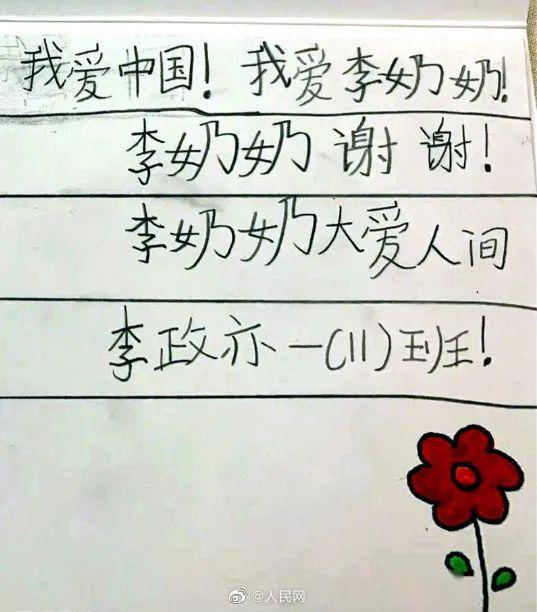 我爱中国！我爱李奶奶！
李奶奶谢谢！
李奶奶大爱人间
李政亦一(11)班！
@人民网